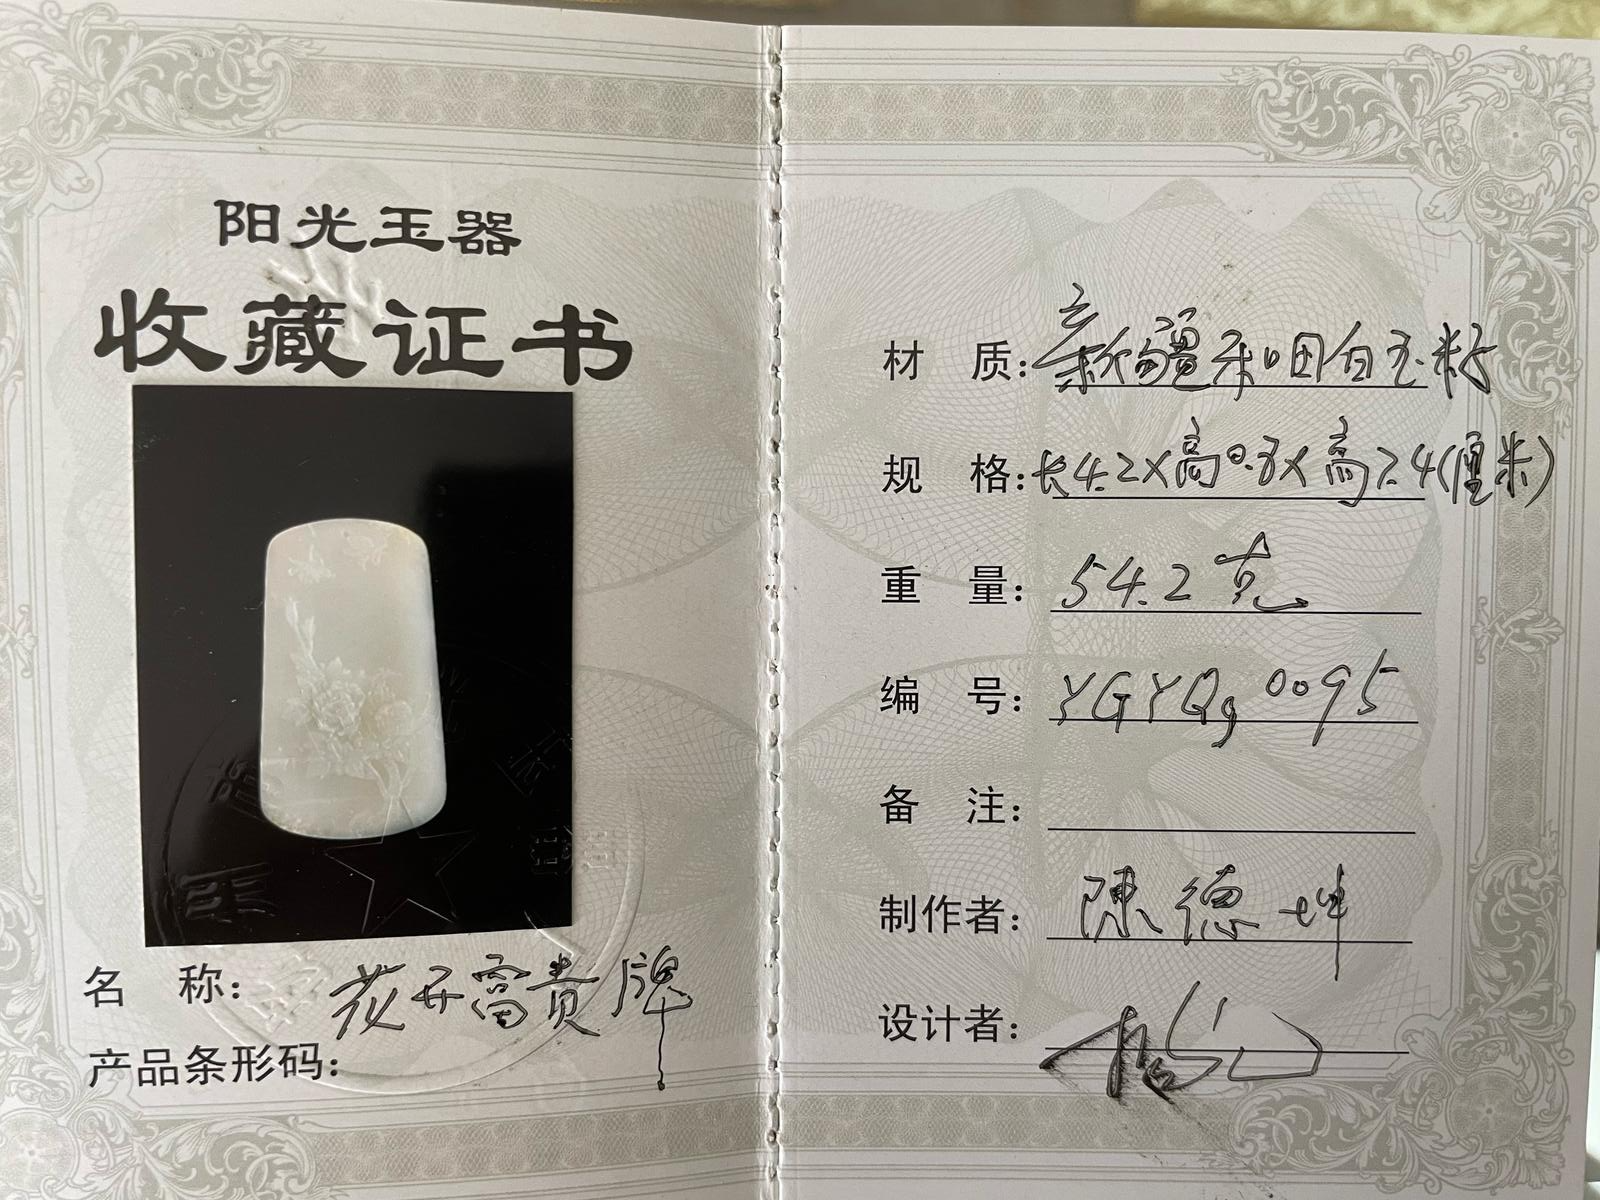 阳光玉器
收藏证书
名 称：花开富贵牌
产品条形码：
材 质：新疆和田白玉籽
规 格：长4.2×高0.8×高7.4(厘米)
重 量：54.2克
编 号：YGYQg0095
备 注：
制作者：陳德坤
设计者：